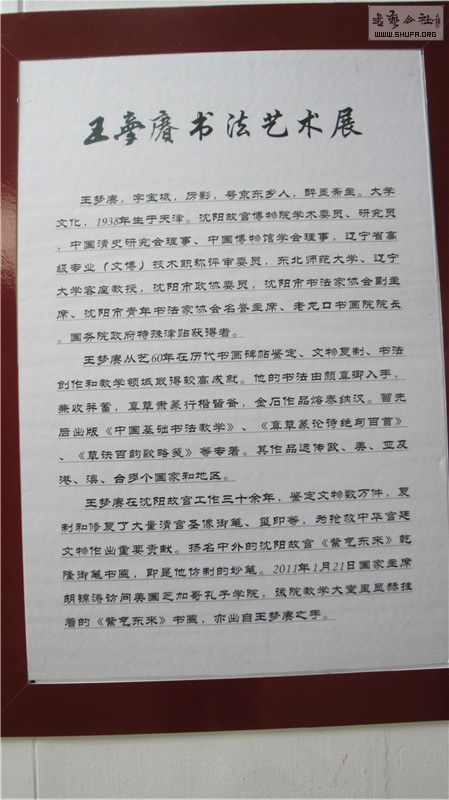 书艺公社
WWW.SHUFA.ORG
王梦赓书法艺术展
王梦赓，字宝城，厉影，号京东乡人，醉墨斋主。大学
文化，1938年生于天津。沈阳故宫博物院学术委员、研究员
，中国清史研究会理事、中国博物馆学会理事，辽宁省高
级专业（文博）技术职称评审委员，东北师范大学、辽宁
大学客座教授，沈阳市政协委员，沈阳市书法家协会副主
席、沈阳市青年书法家协会名誉主席、老龙口书画院院长
。国务院政府特殊津贴获得者。
王梦赓从艺60年在历代书画碑帖鉴定、文物复制、书法
创作和教学领域取得较高成就。他的书法由颜真卿入手，
兼收并蓄，真草隶篆行楷皆备，金石作品熔秦纳汉。曾先
后出版《中国基础书法教学》、《真草篆论诗绝句百首》
、《草诀百韵歌略笺》等专著。其作品远传欧、美、亚及
港、澳、台多个国家和地区。
王梦赓在沈阳故宫工作三十余年，鉴定文物数万件，复
制和修复了大量清宫圣像御笔、玺印等，为抢救中华宫廷
文物作出重要贡献。扬名中外的沈阳故宫《紫气东来》乾
隆御笔书匾，即是他仿制的妙笔。2011年1月21日国家主席
胡锦涛访问美国芝加哥孔子学院，该院教学大堂里显赫挂
着的《紫气东来》书匾，亦出自王梦赓之手。